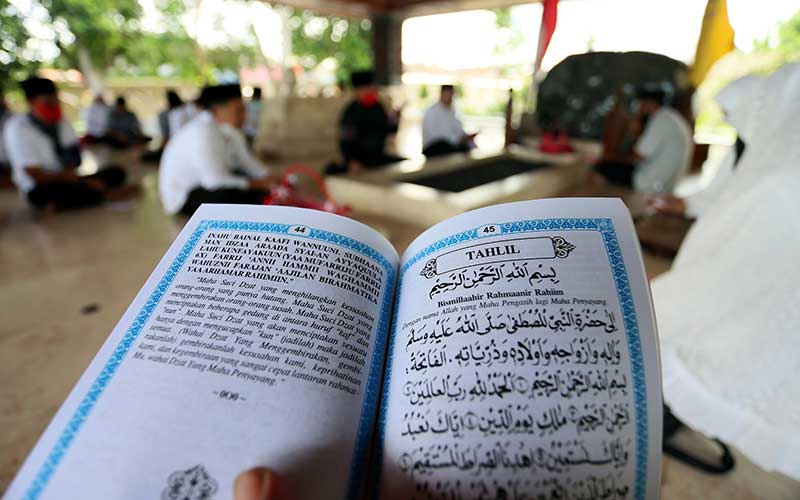 44
INAHU BAINAL KAAFI WANNUUNI, SUBHAANA
MAN IDZAA ARAADA SYAIAN AYYAQUULA
LAHUKUNFAYAKUUN (YAA MUFARRIJU FARRIJ
6X) FARRIJ 'ANNII HAMMII WAGHAMMII
WAHUZNI FARAJAN 'AAJILAN BIRAHMATIKA
YAA ARHAMARRAHIMIN."
"Maha Suci Dzat yang menghilangkan kesusahan
orang-orang yang punya hutang. Maha Suci Dzat yang
menggembirakan orang-orang susah. Maha Suci Dzat yang
menciptakan beberapa gedung di antara huruf "kaf" dan
"nun". Maha Suci Dzat yang akan menciptakan sesuatu
hanya dengan mengucapkan "kun" (jadilah) maka jadilah
semua. (Wahai Dzat Yang Menggembirakan, gembi-
rakanlah) gembirakanlah kesusahan kami, keprihatinan
kami, dan kegembiraan yang sangat cepat lantaran rahmat-
Mu, wahai Dzat Yang Maha Penyayang."
45
TAHLIL
بِسْمِ اللهِ الرَّحْمٰنِ الرَّحِيْمِ
Bismillaahir Rahmaanir Rahiim
Dengan nama Allah yang Maha Pengasih lagi Maha Penyayang.
اِلٰى حَضْرَةِ النَّبِيِّ الْمُصْطَفٰى صَلَّى اللهُ عَلَيْهِ وَسَلَّمَ
وَاٰلِهِ وَاَزْوَاجِهِ وَاَوْلَادِهِ وَذُرِّيَّاتِهِ. اَلْفَاتِحَةُ
بِسْمِ اللهِ الرَّحْمٰنِ الرَّحِيْمِ ۝١ اَلْحَمْدُ لِلّٰهِ رَبِّ الْعَالَمِيْنَ ۝٢
الرَّحْمٰنِ الرَّحِيْمِ ۝٣ مٰلِكِ يَوْمِ الدِّيْنِ ۝٤ اِيَّاكَ نَعْبُدُ
وَاِيَّاكَ نَسْتَعِيْنُ ۝٥ اِهْدِنَا الصِّرَاطَ الْمُسْتَقِيْمَ ۝٦